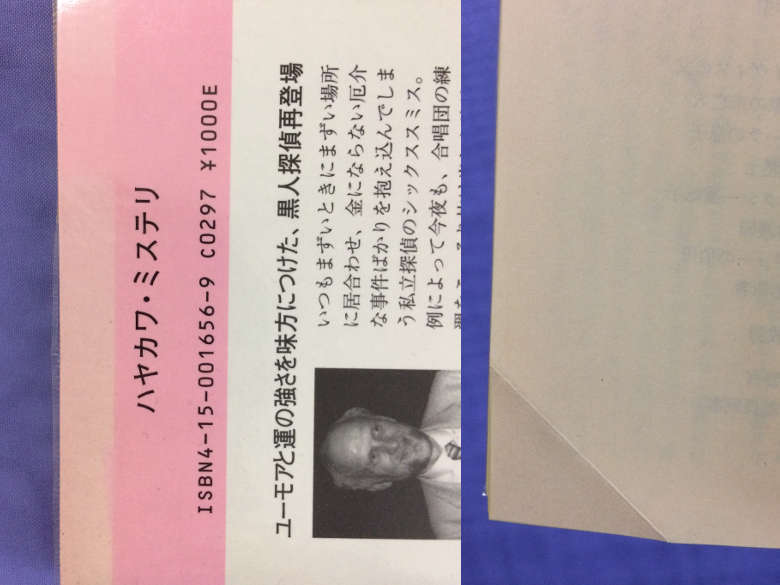 ハヤカワ・ミステリ
ISBN4-15-001656-9 C0297 ¥1000E
ユーモアと運の強さを味方につけた、黒人探偵再登場
いつもまずいときにまずい場所
に居合わせ、金にならない厄介
な事件ばかりを抱え込んでしま
う私立探偵のシックススミス。
例によって今夜も、合唱団の練